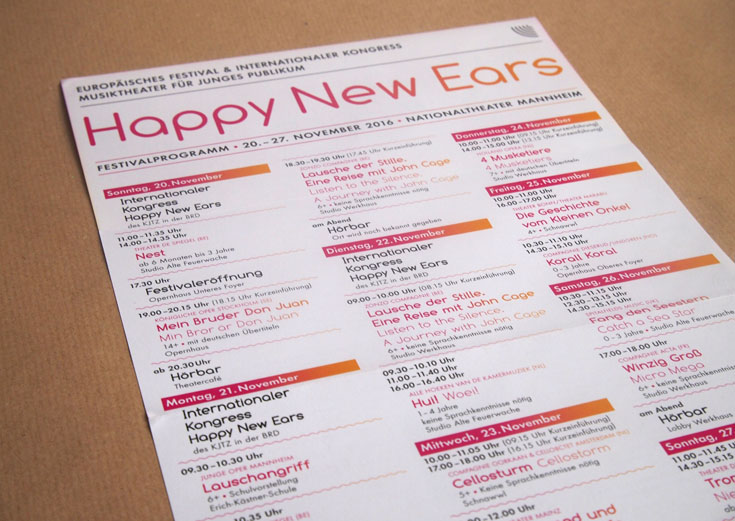 EUROPÄISCHES FESTIVAL & INTERNATIONALER KONGRESS
MUSIKTHEATER FÜR JUNGES PUBLIKUM
Happy New Ears
FESTIVALPROGRAMM • 20. – 27. NOVEMBER 2016 • NATIONALTHEATER MANNHEIM
Sonntag, 20. November
Internationaler
Kongress
Happy New Ears
des KJTZ in der BRD
11.00 – 11.35 Uhr
14.00 – 14.35 Uhr
THEATER DE SPIEGEL (BE)
Nest
ab 6 Monaten bis 3 Jahre
Studio Alte Feuerwache
17.30 Uhr
Festivaleröffnung
Opernhaus Unteres Foyer
19.00 – 20.15 Uhr (18.15 Uhr Kurzeinführung)
KÖNIGLICHE OPER STOCKHOLM (SE)
Mein Bruder Don Juan
Min Bror är Don Juan
14+ • mit deutschen Übertiteln
Opernhaus
ab 20.30 Uhr
Hörbar
Theatercafé
Montag, 21. November
Internationaler
Kongress
Happy New Ears
des KJTZ in der BRD
09.30 – 10.30 Uhr
JUNGE OPER MANNHEIM
Lauschangriff
6+ • Schulvorstellung
Erich-Kästner-Schule
10.35 Uhr
18.30 – 19.30 Uhr (17.45 Uhr Kurzeinführung)
Lausche der Stille.
Eine Reise mit John Cage
Listen to the Silence.
A Journey with John Cage
6+ • keine Sprachkenntnisse nötig
Studio Werkhaus
am Abend
Hörbar
Ort wird noch bekannt gegeben
Dienstag, 22. November
Internationaler
Kongress
Happy New Ears
09.00 – 10.00 Uhr (08.15 Uhr Kurzeinführung)
Lausche der Stille.
Eine Reise mit John Cage
Listen to the Silence.
A Journey with John Cage
6+ • keine Sprachkenntnisse nötig
Studio Werkhaus
09.30 – 10.10 Uhr
11.00 – 11.40 Uhr
16.00 – 16.40 Uhr
Hui! Woei!
1 – 4 Jahre
keine Sprachkenntnisse nötig
Studio Alte Feuerwache
Mittwoch, 23. November
10.00 – 11.05 Uhr (09.15 Uhr Kurzeinführung)
17.00 – 18.05 Uhr (16.15 Uhr Kurzeinführung)
Cellosturm Cellostorm
5+ • Keine Sprachkenntnisse nötig
Schnawwl
THEATER MAINZ
und
Donnerstag, 24. November
10.00 – 11.00 Uhr (09.15 Uhr Kurzeinführung)
14.00 – 15.00 Uhr (13.15 Uhr Kurzeinführung)
4 Musketiere
7+ • mit deutschen Übertiteln
Studio Werkhaus
Freitag, 25. November
10.00 – 11.00 Uhr
16.00 – 17.00 Uhr
Die Geschichte
vom Kleinen Onkel
6+ • Schnawwl
10.30 – 11.10 Uhr
14.30 – 15.10 Uhr
Korall Koral
0 – 3 Jahre
Opernhaus Oberes Foyer
Samstag, 26. November
10.30 – 11.15 Uhr
12.30 – 13.15 Uhr
14.30 – 15.15 Uhr
Fang den Seestern
Catch a Sea Star
0 – 3 Jahre • Studio Alte Feuerwache
17.00 – 18.00 Uhr
COMPAGNIE ACTA (FR)
Winzig Groß
Micro Mega
6+ • keine Sprachkenntnisse nötig
Studio Werkhaus
am Abend
Hörbar
Lobby Werkhaus
Sonntag, 27
11.00 – 11.45
14.30 – 15.15